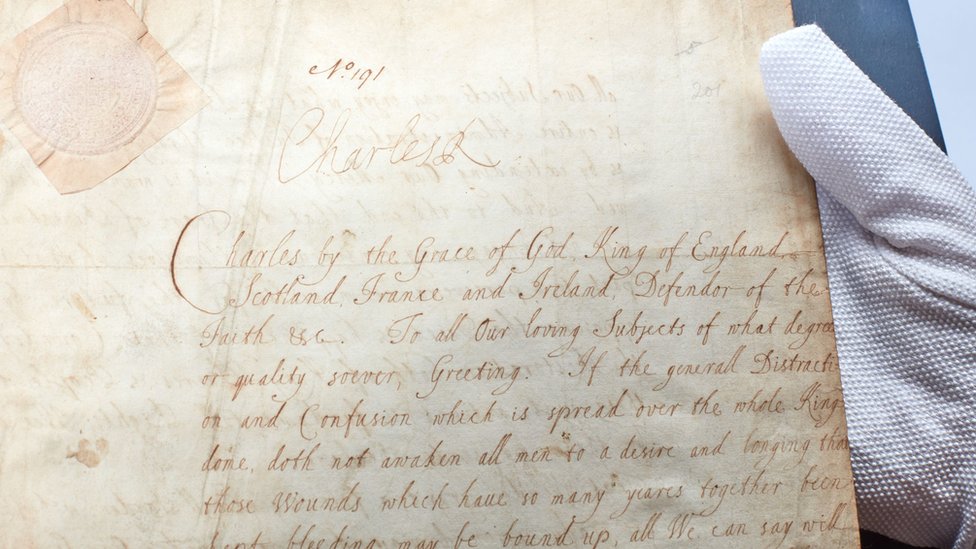 No. 191
201
Charles R
Charles by the Grace of God, King of England,
Scotland, France and Ireland, Defendor of the
Faith &c. To all Our loving Subjects of what degree
or quality soever, Greeting. If the generall Distracti-
on and Confusion which is spread over the whole King-
dome, doth not awaken all men to a desire and longing that
those Wounds which have so many yeares together been
kept bleeding may be bound up, all We can say will